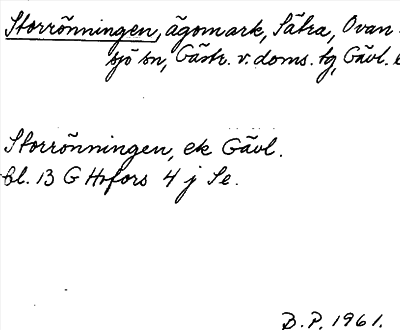 Storrönningen, ägomark, Sätra, Ovan-
sjö sn, Gästr. v. doms. tg, Gävl. l
Storrönningen, ek Gävl.
bl. 13 G Hofors 4 j Se.
B.P. 1961.